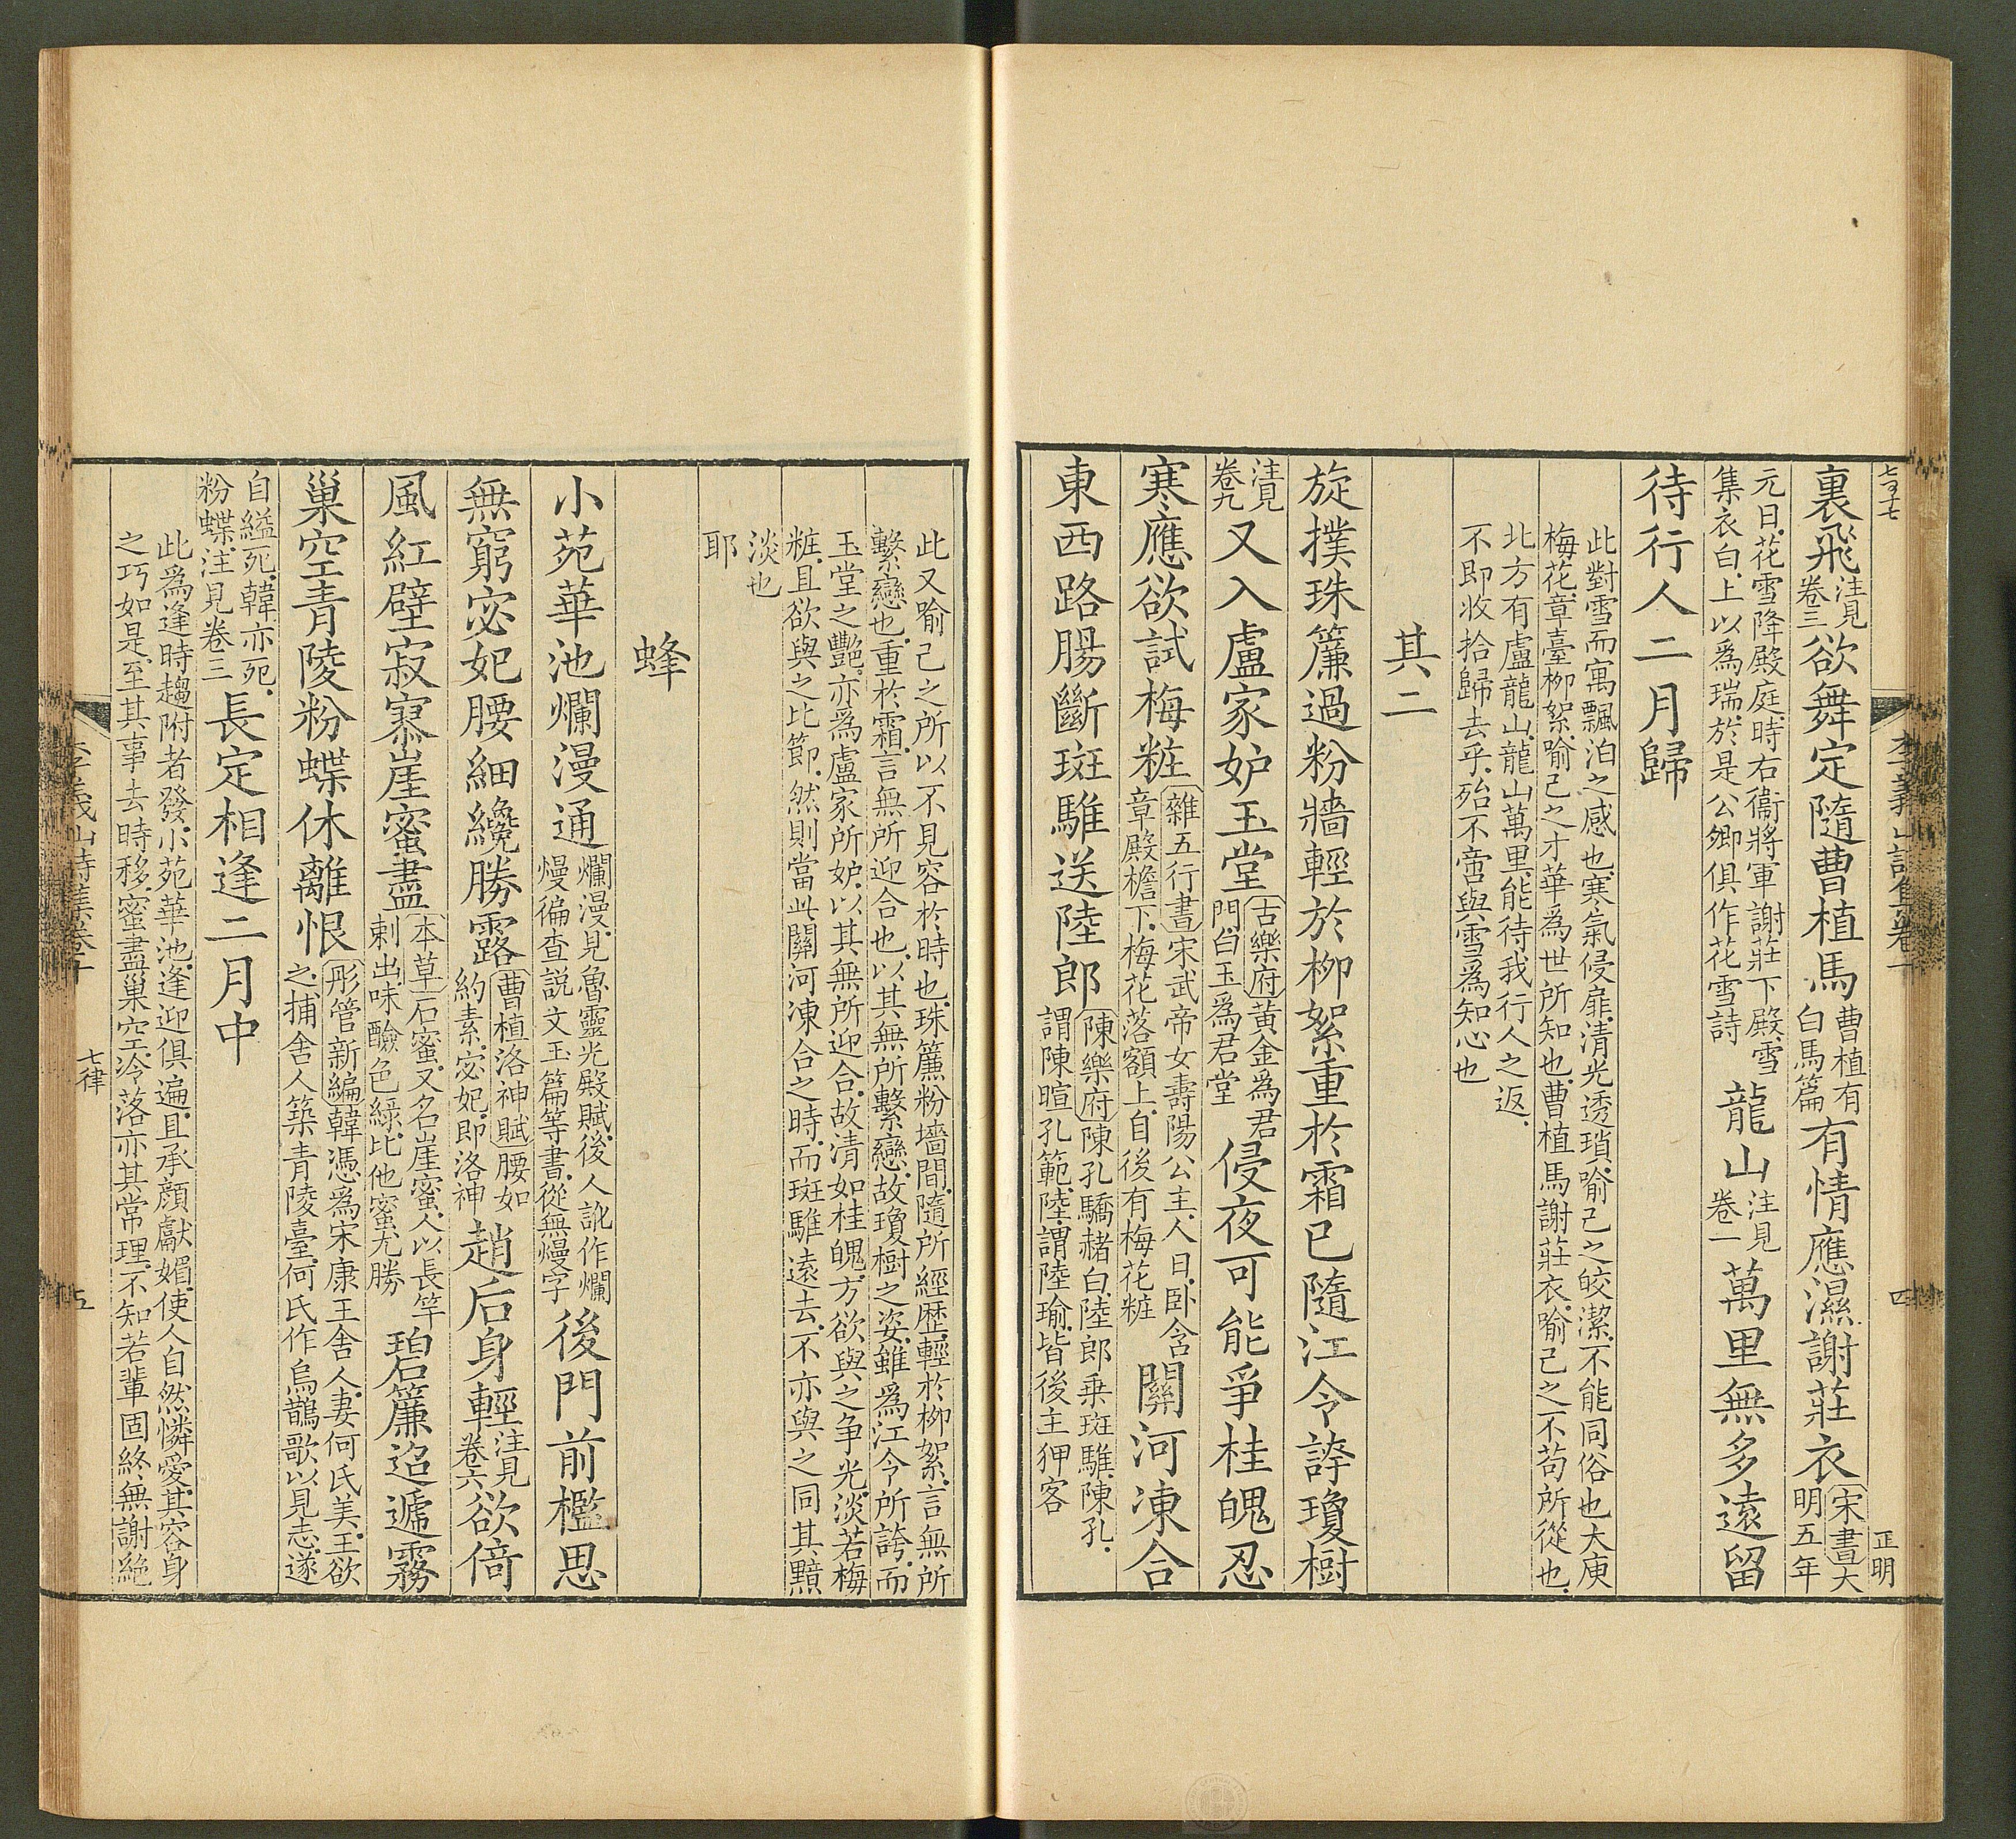 七百十七
正明
裏飛注見卷三欲舞定隨曹植馬曹植有白馬篇有情應濕謝莊衣宋書大明五年
元日花雪降殿庭時右衞將軍謝莊下殿雪集衣白上以爲瑞於是公卿俱作花雪詩龍山注見卷一萬里無多遠留
待行人二月歸
此對雪而寓飄泊之感也寒氣侵扉清光透瑣喻己之皎潔不能同俗也大庾
梅花章臺柳絮喻己之才華爲世所知也曹植馬謝莊衣喻己之不苟所從也
北方有盧龍山龍山萬里能待我行人之返
不即收拾歸去乎殆不啻與雪爲知心也
其二
旋撲珠簾過粉牆輕於柳絮重於霜已隨江令誇瓊樹
注見卷九又入盧家妒玉堂古樂府黃金爲君門白玉爲君堂侵夜可能爭桂魄忍
寒應欲試梅粧雜五行書宋武帝女壽陽公主人日卧含章殿檐下梅花落額上自後有梅花粧關河凍合
東西路腸斷斑騅送陸郎陳樂府陳孔驕赭白陸郎乗斑騅陳孔謂陳暄孔範陸謂陸瑜皆後主狎客
李義山詩集卷十
四
此又喻己之所以不見容於時也珠簾粉墻間隨所經歴輕於柳絮言無所
繫戀也重於霜言無所迎合也以其無所繫戀故瓊樹之姿雖爲江令所誇而
玉堂之艷亦爲盧家所妒以其無所迎合故清如桂魄方欲與之争光淡若梅
粧且欲與之比節然則當此關河凍合之時而斑騅遠去不亦與之同其黯
淡也
耶
蜂
小苑華池爛漫通爛漫見魯靈光殿賦後人訛作爛熳徧查説文玉篇等書從無熳字後門前檻思
無窮宓妃腰細纔勝露曹植洛神賦腰如約素宓妃即洛神趙后身輕注見卷六欲倚
風紅壁寂寥崖蜜盡本草石蜜又名崖蜜人以長竿刺出味醶色綠比他蜜尤勝碧簾迢遞霧
巢空青陵粉蝶休離恨彤管新編韓馮爲宋康王舍人妻何氏美王欲之捕舍人築青陵臺何氏作烏鵲歌以見志遂
自縊死韓亦死粉蝶注見卷三長定相逢二月中
此爲逢時趨附者發小苑華池逢迎俱遍且承顏獻媚使人自然憐愛其容身
之巧如是至其事去時移蜜盡巢空冷落亦其常理不知若輩固終無謝絶
李義山詩集卷十
七律
五